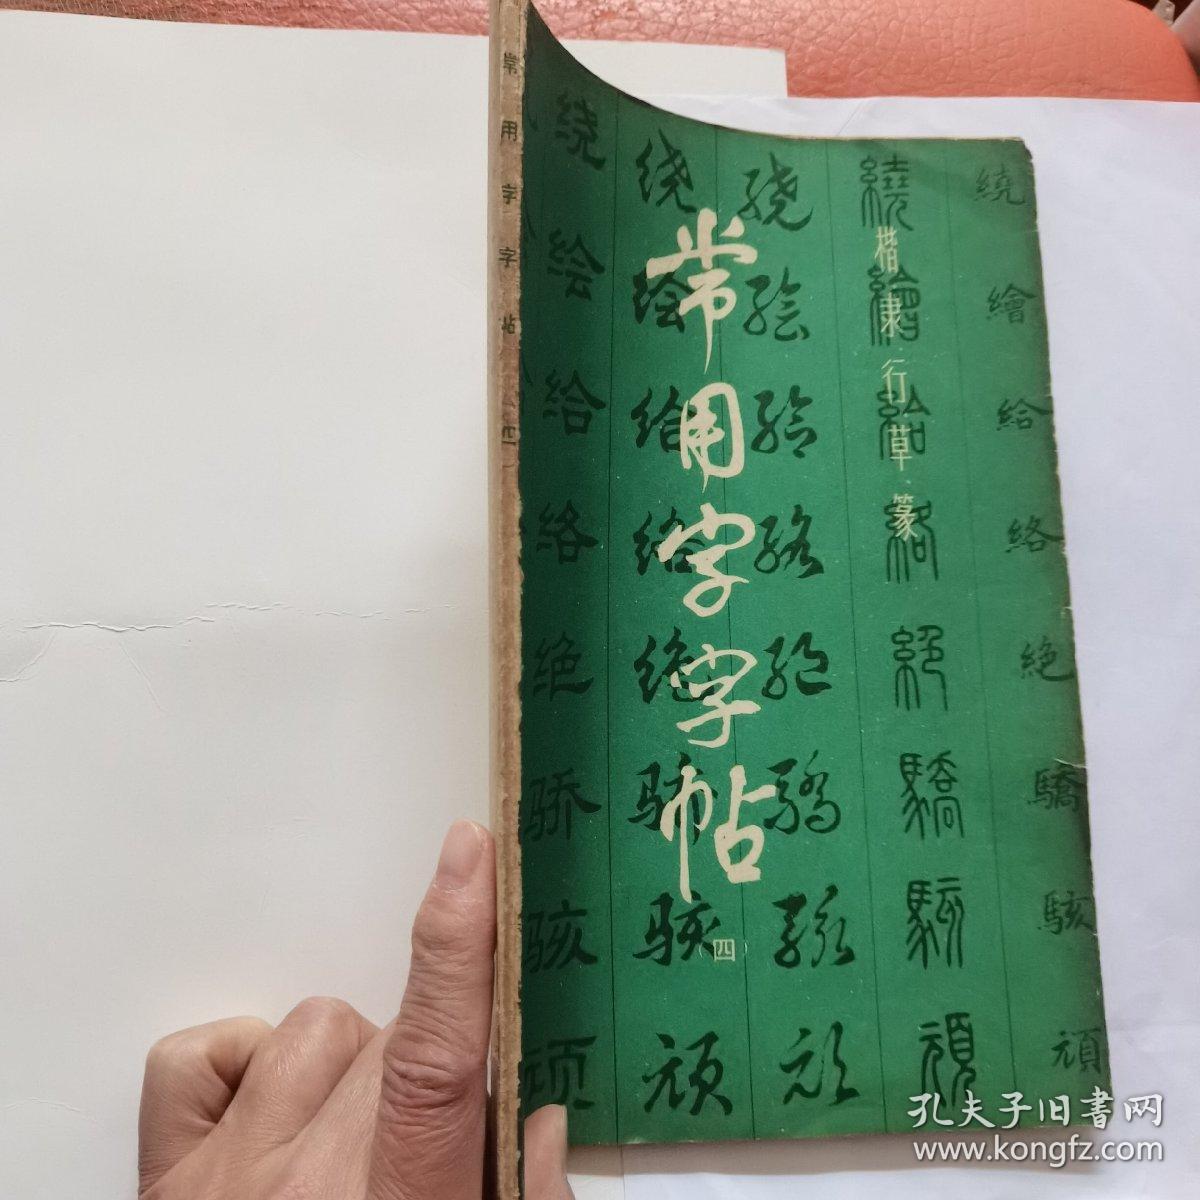 常用字字帖
四
楷隶行草篆
常用字字帖（四）
绕绘给络绝骄骇顽
绕绘给络绝骄骇顽
绕绘给络绝骄骇顽
繞繪給絡絕驕駭頑
繞繪給絡絕驕駭頑
孔夫子旧書网
www.kongfz.com